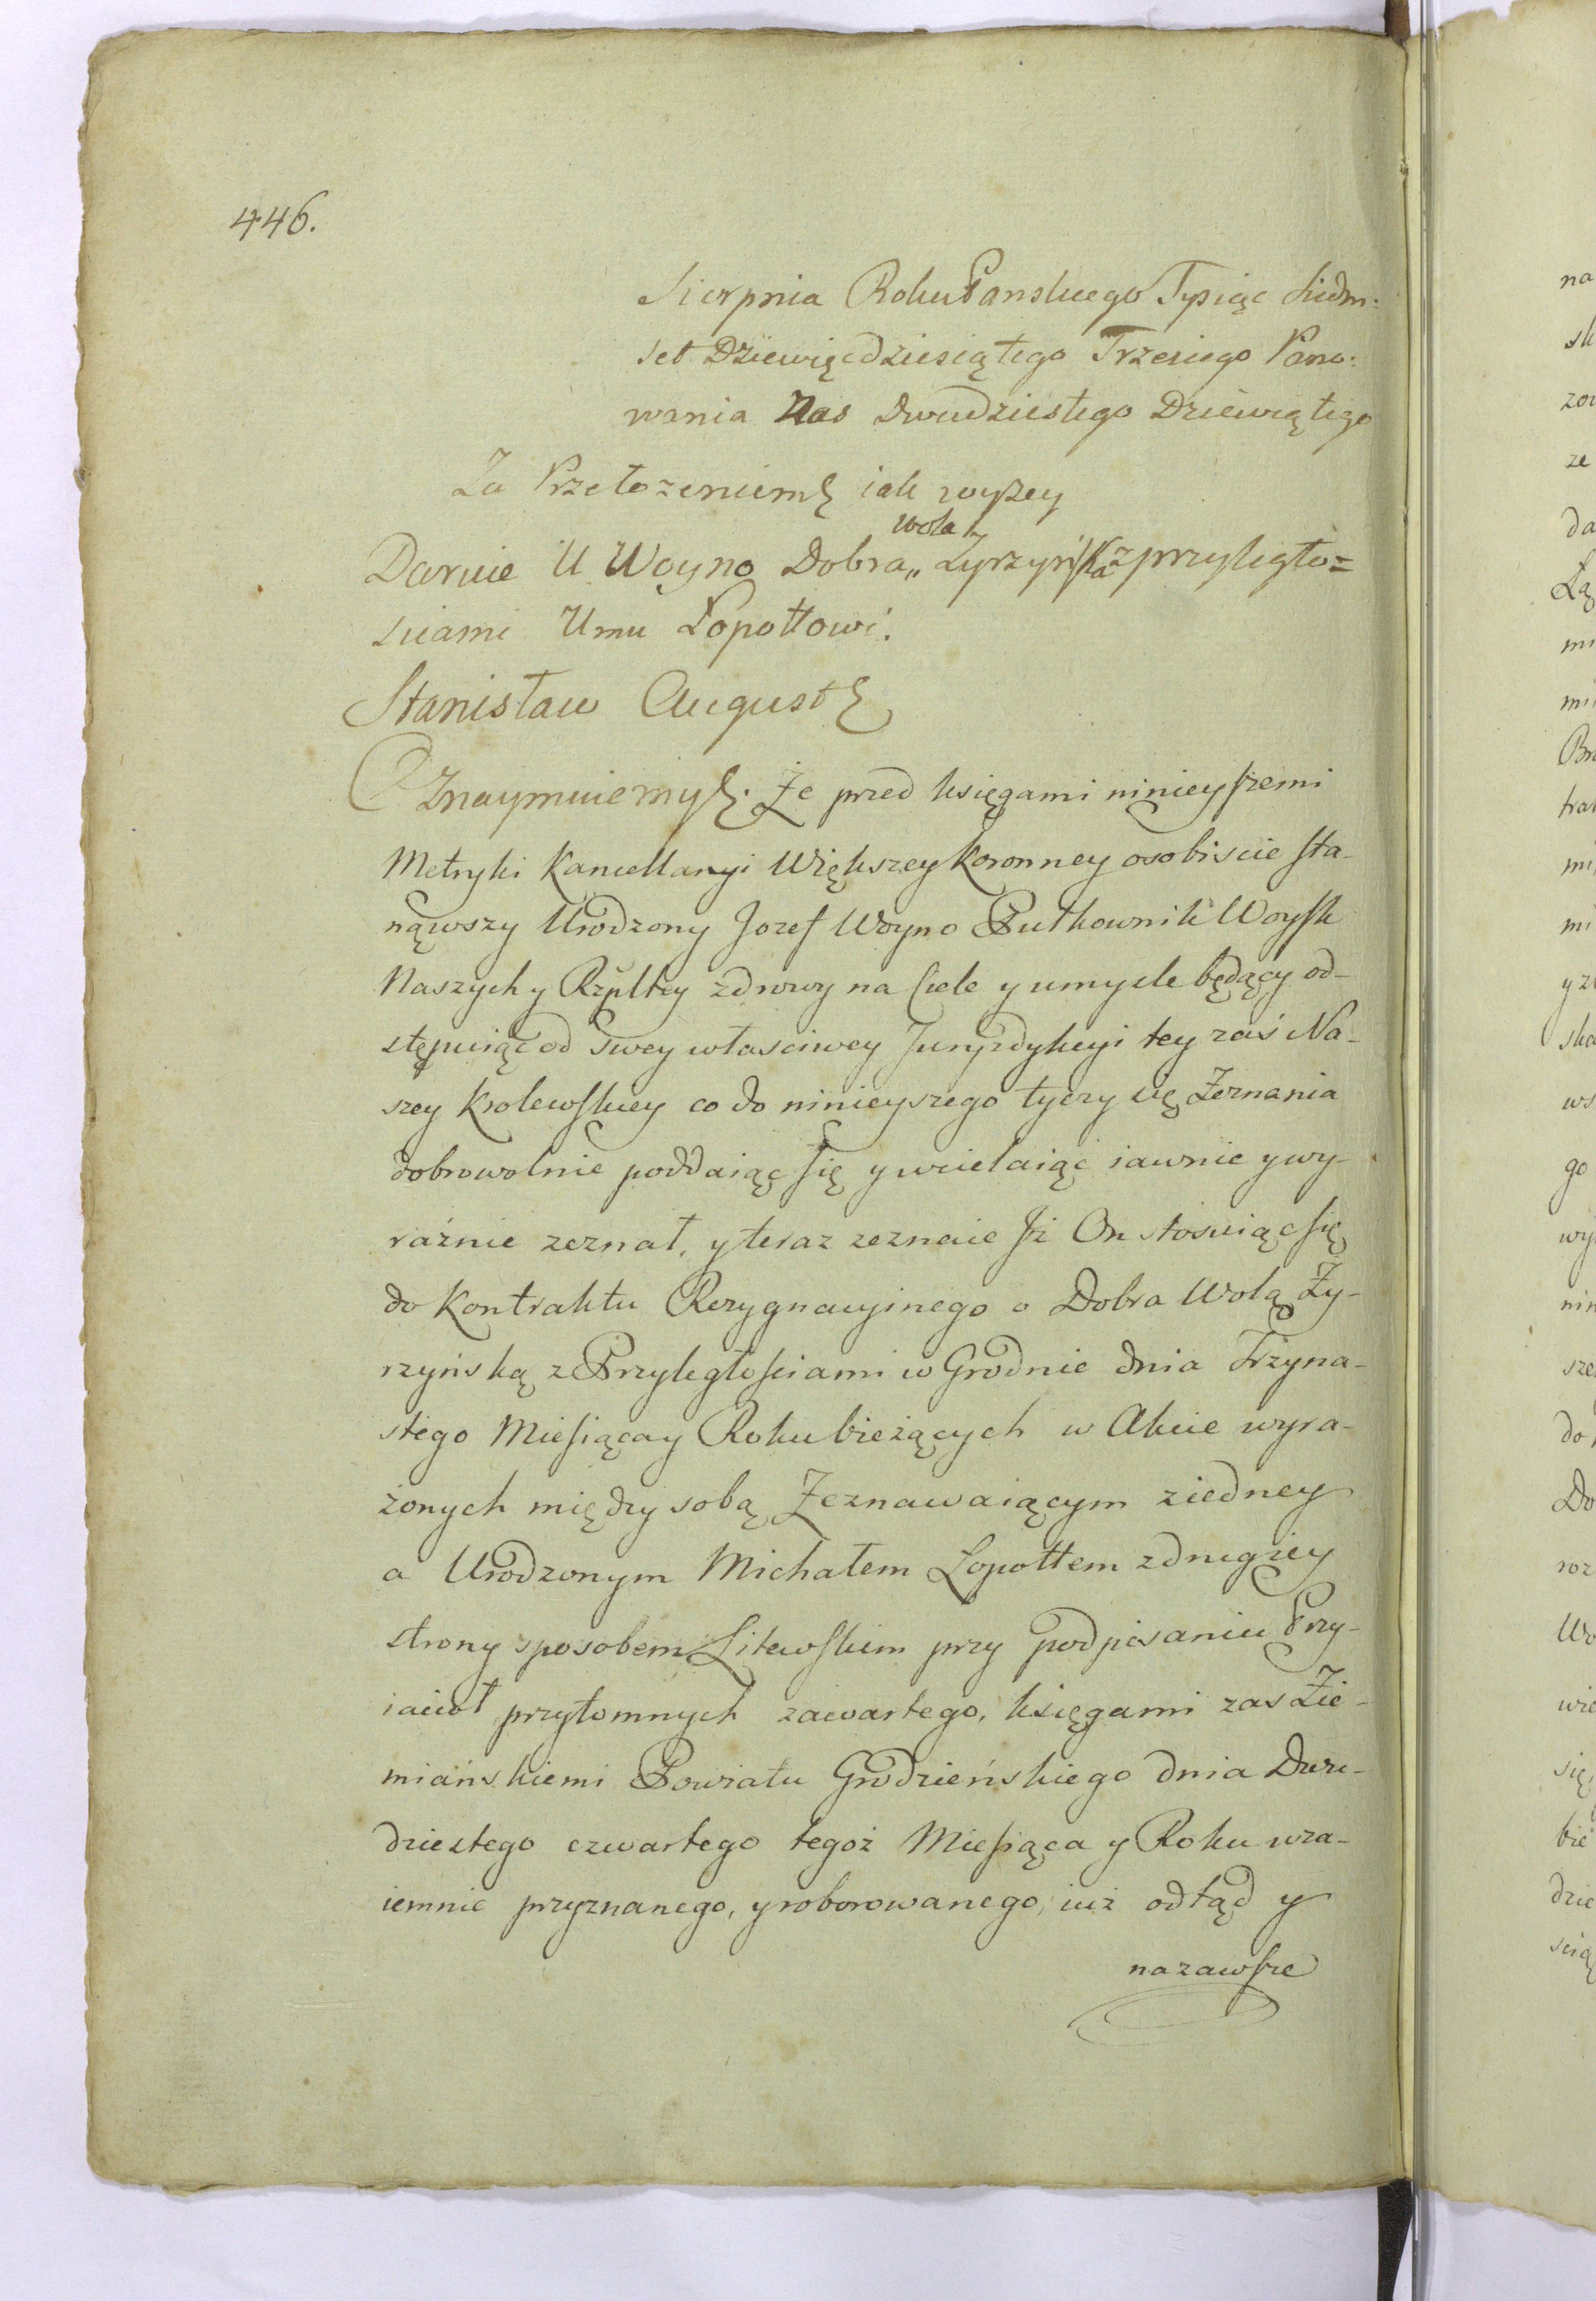 446.
Sierpnia Roku Panskiego Tysiąc Siedm-
set Dziewięcdziesiątego Trzeciego Pano-
wania Nas Dwudziestego Dziewiątego
Za Przełozeniem iak wyszey
wola
Daruie U Woyno Dobra „ Zyrzyńska z przyległo=
sciami Umu Łopottowi.
Stanisław August
Oznaymuiemy. Że przed księgami ninieyszemi
Metryki Kancellaryi Większey Koronney osobiscie sta-
nąwszy Urodzony Jozef Woyno Pułkownik Woysk
Naszych y Rzpltey zdrowy na Ciele y umysle będący od-
stępuiąc od swey własciwey Juryzdykcyi tey zaś Na-
szey Krolewskiey co do ninieyszego tyczy się Zeznania
dobrowolnie poddaiąc się y wcielaiąc iawnie y wy-
raźnie zeznał, y teraz zeznaie Iż On stosuiąc się
do Kontraktu Rezygnacyinego o Dobra Wolą Ży-
rzyńską z Przyległosciami w Grodnie dnia Trzyna-
stego Miesiąca y Roku bieżących w Akcie wyra-
żonych między sobą Zeznawaiącym z iedney
a Urodzonym Michałem Łopottem z drugiey
strony sposobem Litewskim przy podpisaniu Przy-
iacioł przytomnych zawartego, księgami zas Zie-
miańskiemi Powiatu Grodzieńskiego dnia Dwu-
dziestego czwartego tegoż Miesiąca y Roku wza-
iemnie przyznanego, y roborowanego, iuż odtąd y
nazawsze